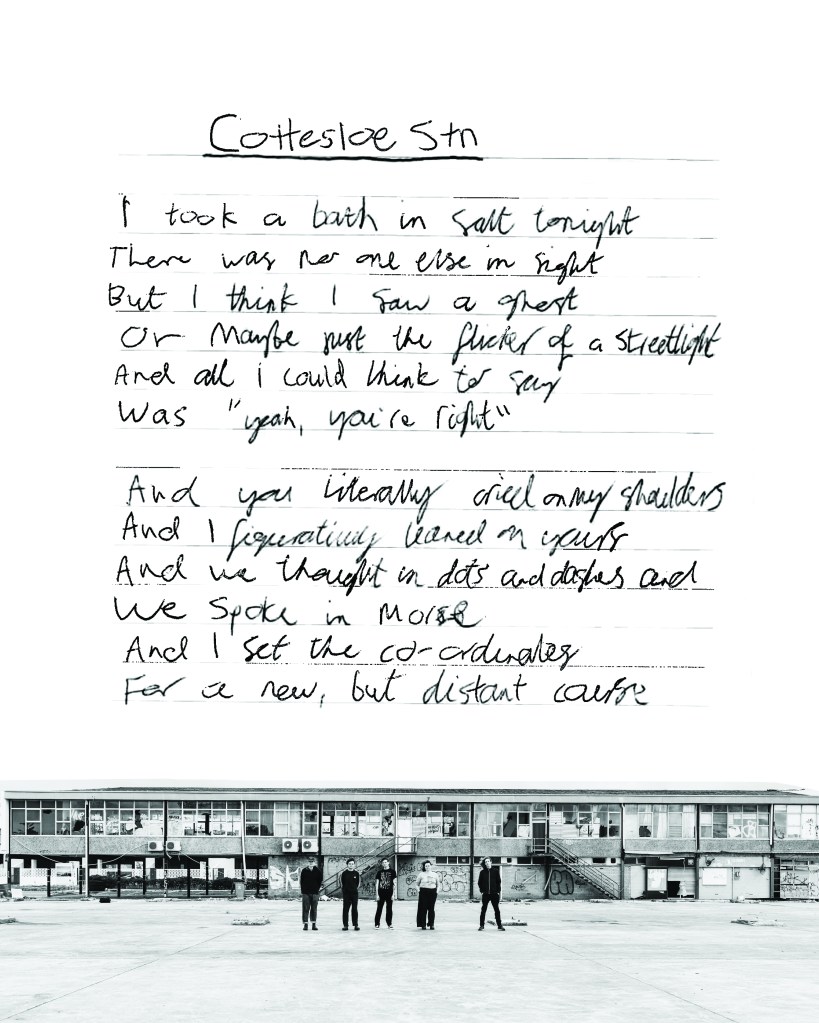 Cottesloe Stn
I took a bath in salt tonight
There was no one else in sight
But I think I saw a ghost
Or Maybe just the flicker of a streetlight
And all I could think to say
Was "yeah, you're right"
And you literally cried on my shoulders
And I figuratively leaned on yours
And we thought in dots and dashes and
We Spoke in Morse
And I set the co-ordinates
For a new, but distant course